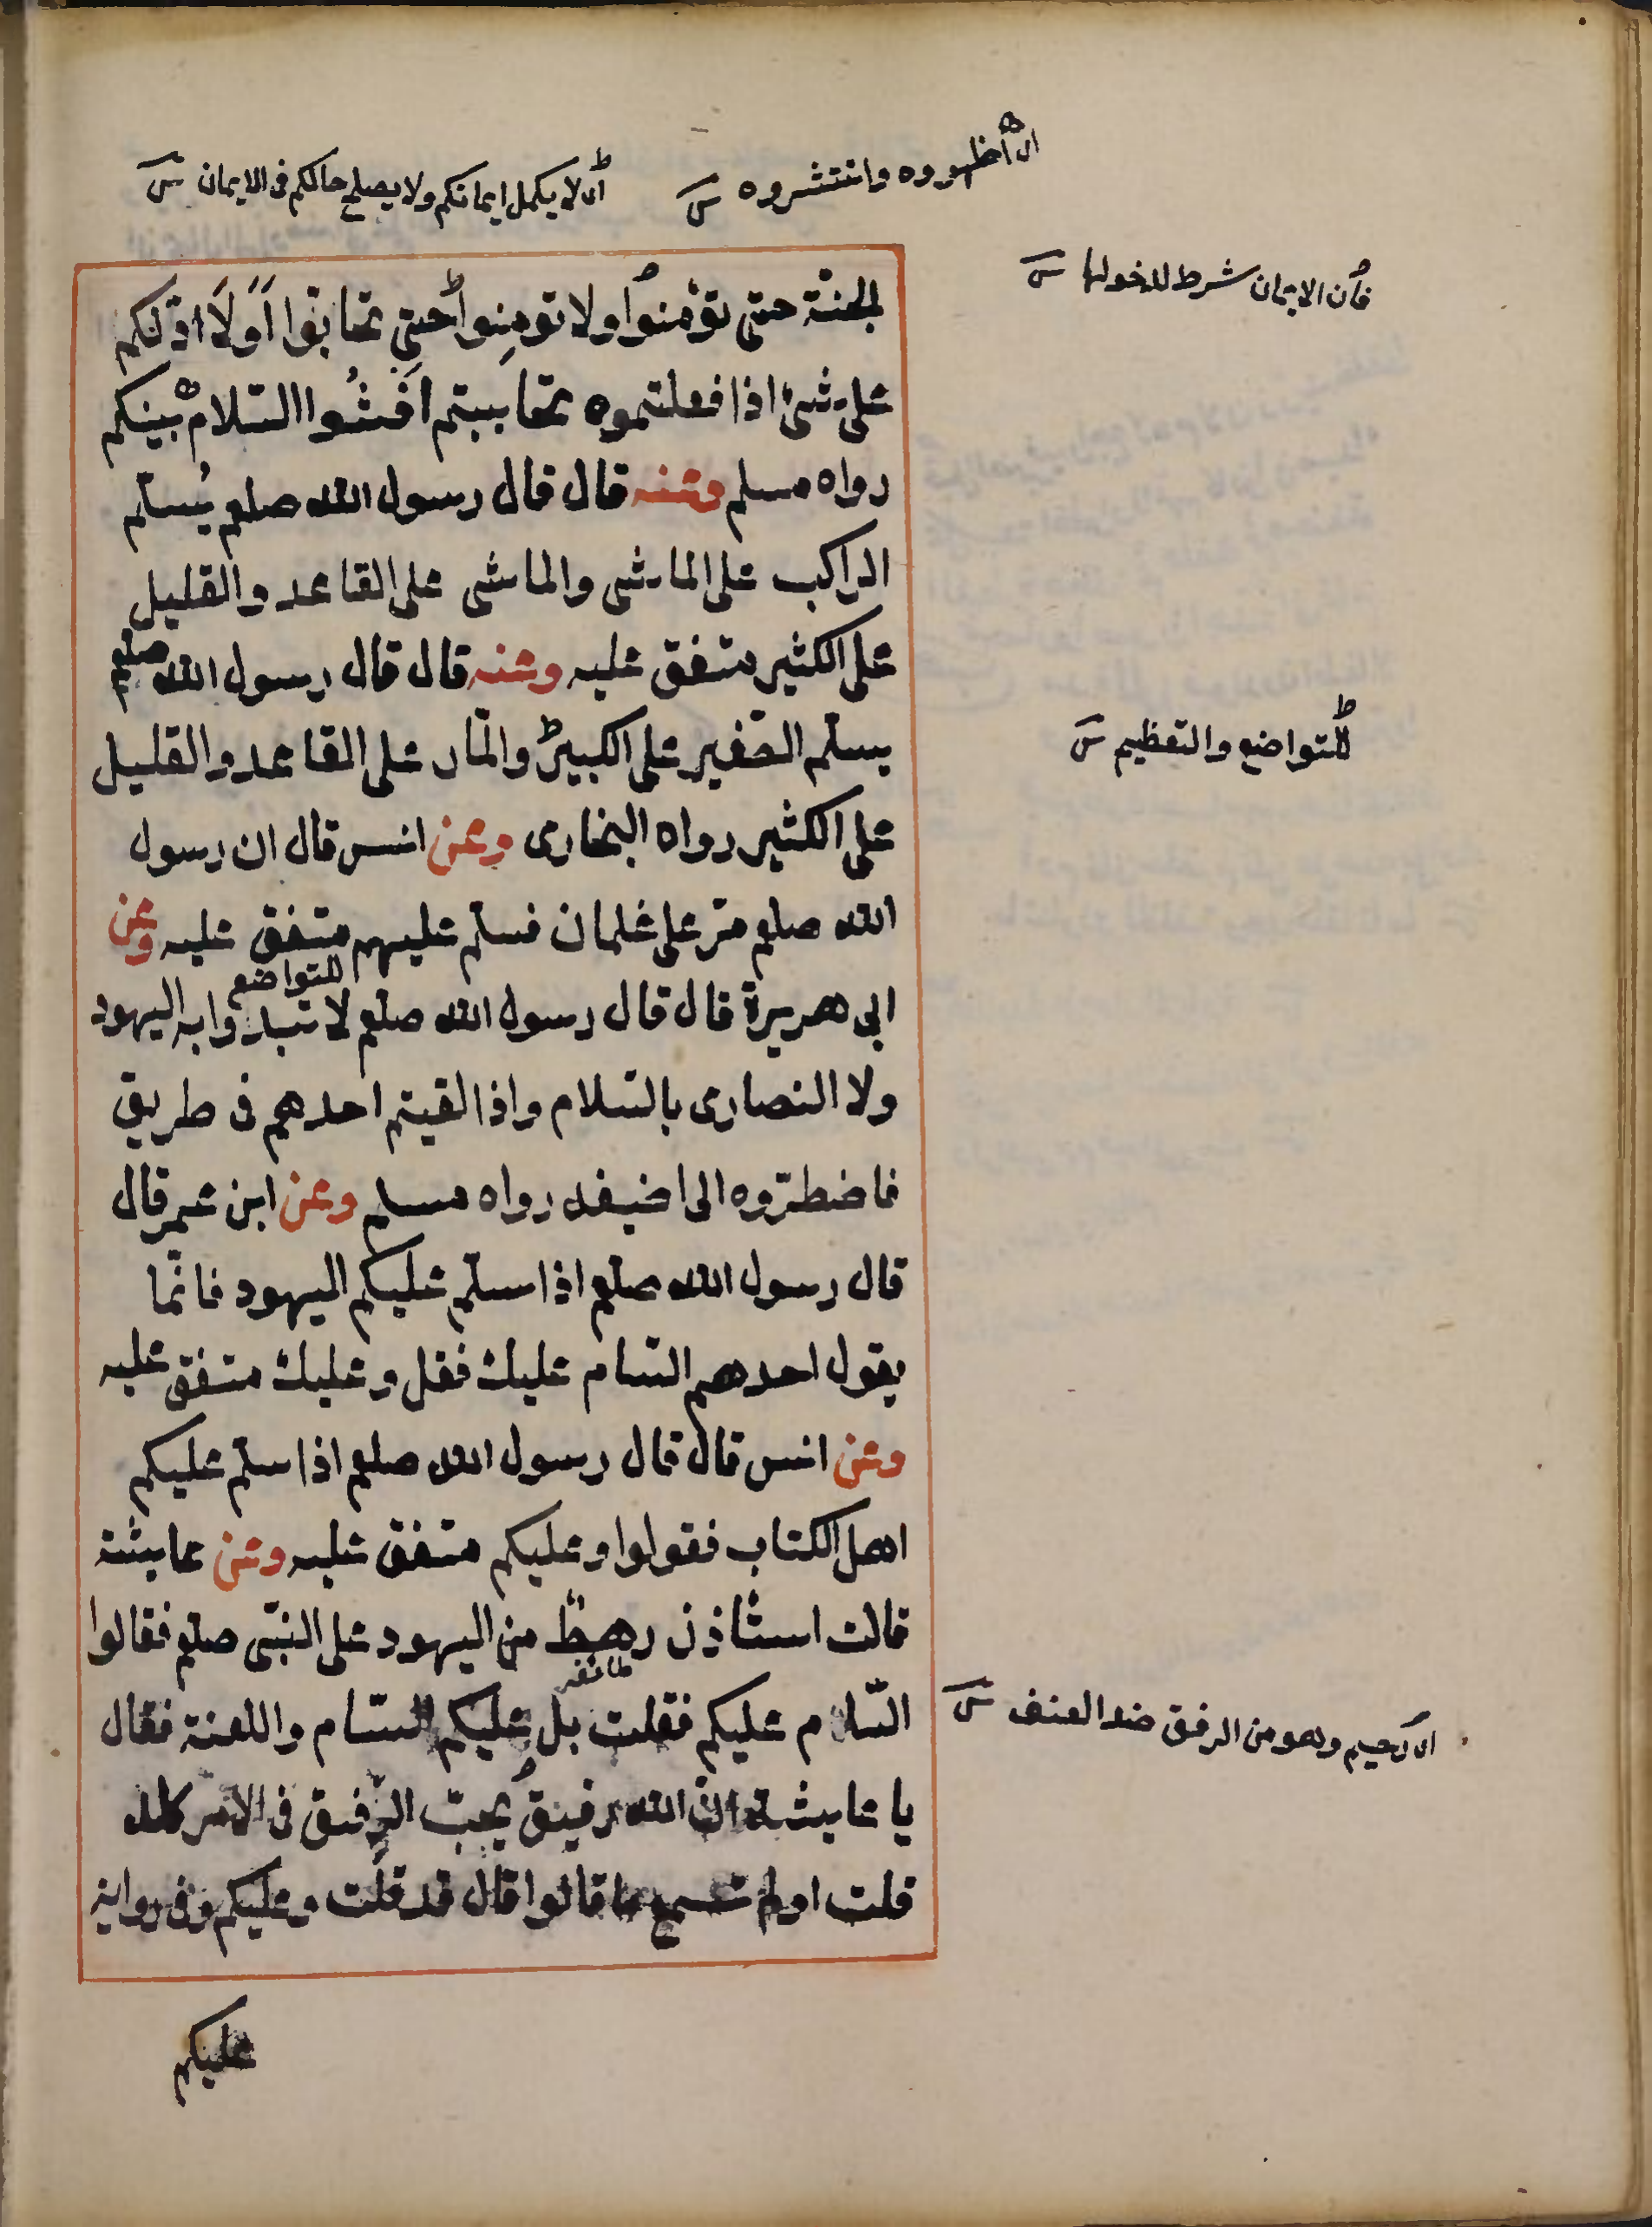 اى اظهروه وانتشروه
اى لا يكمل ايمانكم ولا يصلح حالكم فى الايمان
فأن الايمان شرط لدخولها
الجنة حتى تؤمنوا ولا تومنوا حتى تحابوا اولا ادلكم
على شئ اذا فعلتموه تحاببتم افشوا السلام بينكم
رواه مسلم وعنه قال قال رسول الله صلعم يسلم
الراكب على الماشى والماشى على القاعد والقليل
على الكثير متفق عليه وعنه قال قال رسول الله صلعم
يسلم الصغير على الكبير والمار على القاعد والقليل
للتواضع والتعظيم
على الكثير رواه البخارى وعن انس قال ان رسول
الله صلعم مر على غلمان فسلم عليهم متفق عليه وعن
للتواضع
ابى هريرة قال قال رسول الله صلعم لا تبدوا به اليهود
ولا النصارى بالسلام واذا لقيتم احدهم فى طريق
فاضطروه الى اضيقه رواه مسلم وعن ابن عمر قال
قال رسول الله صلعم اذا سلم عليكم اليهود فانما
يقول احدهم السام عليك فقل وعليك متفق عليه
وعن انس قال قال رسول الله صلعم اذا سلم عليكم
اهل الكتاب فقولوا وعليكم متفق عليه وعن عايشة
قالت استأذن رهط من اليهود على النبى صلعم فقالوا
طائفه
السلام عليكم فقلت بل عليكم السام واللعنة فقال
اى رحيم وهو من الرفق ضد العنف
يا عايشة ان الله رفيق يحب الرفق فى الامر كله
قلت اولم تسمع ما قالوا قال قد قلت وعليكم وفى رواية
عليكم